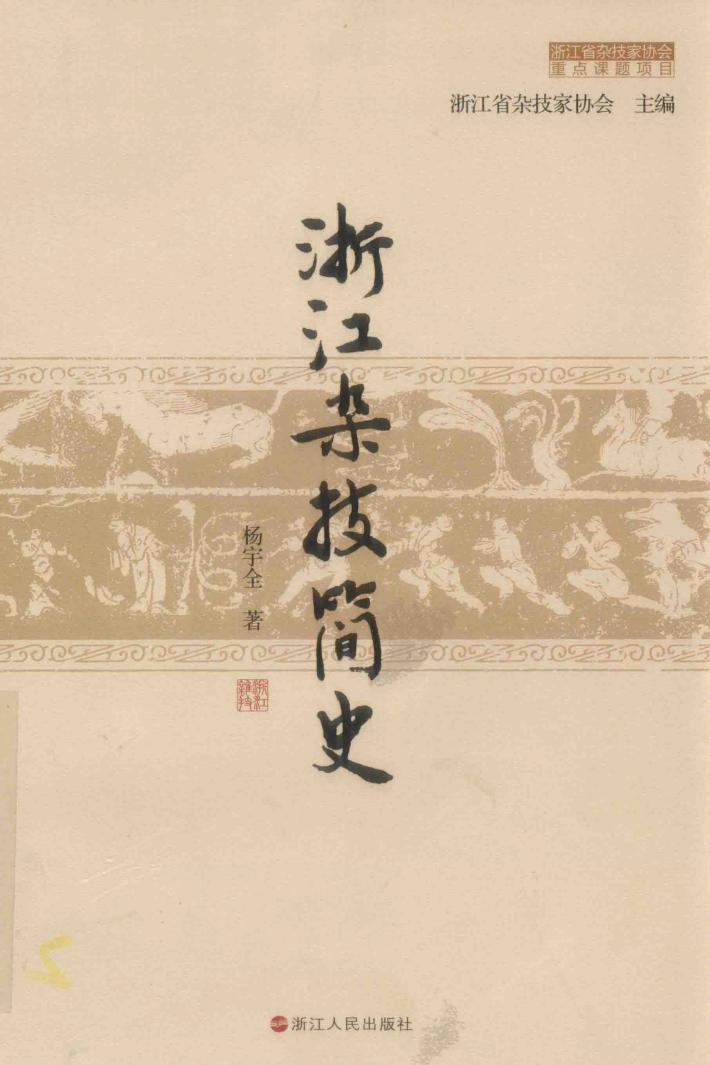 浙江省杂技家协会
重点课题项目
浙江省杂技家协会 主编
浙江杂技简史
杨宇全 著
浙江
雜技
浙江人民出版社